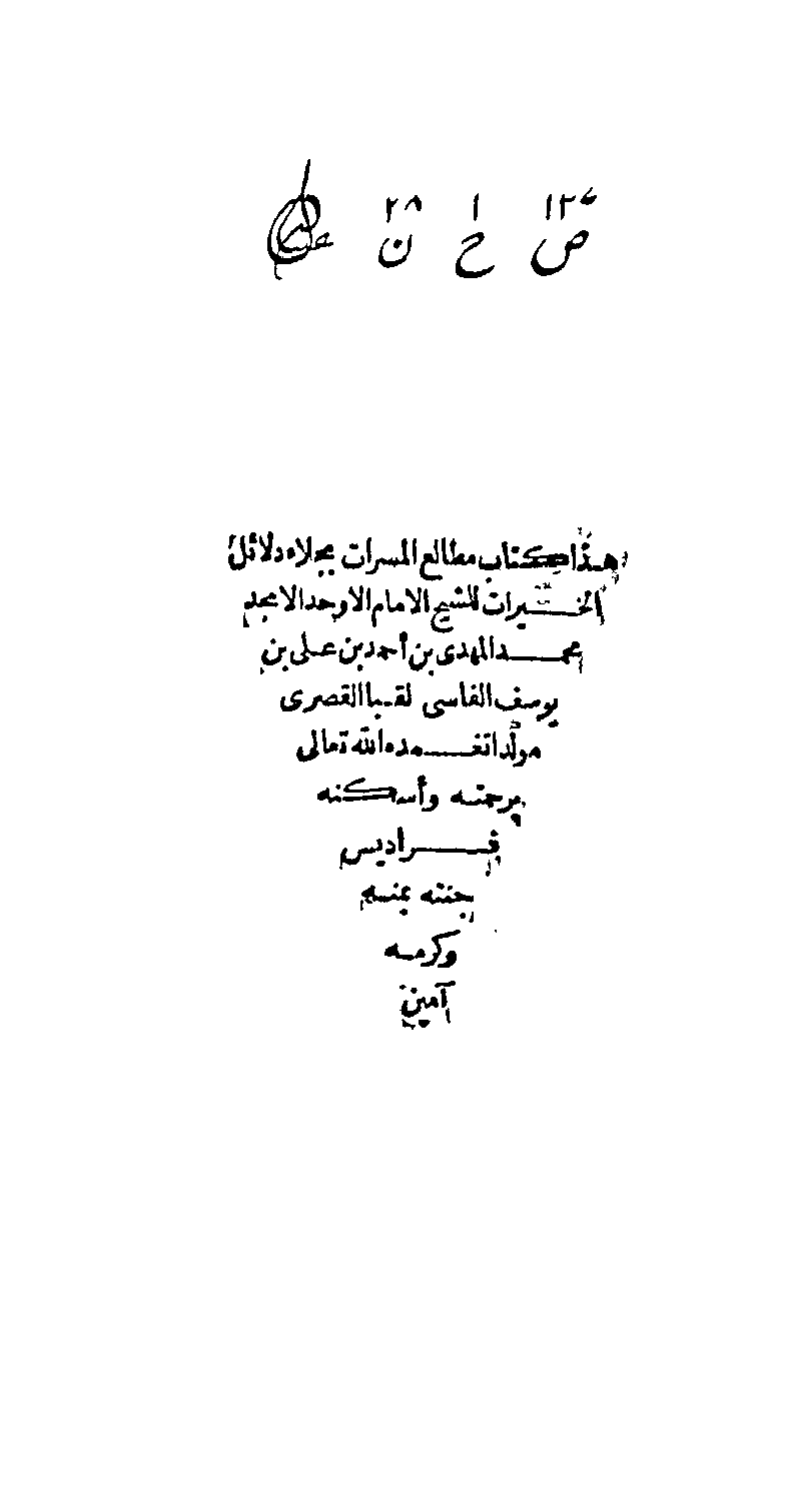 ١٢٤ ١ ٢٨
ص ح ن
هذا كتاب مطالع المسرات بجلاء دلائل
الخيرات للشيخ الامام الاوحد الامجد
محمد المهدى بن أحمد بن على بن
يوسف الفاسى لقبا القصرى
مولدا تغمده الله تعالى
برحمته وأسكنه
فراديس
جنته بمنه
وكرمه
آمين